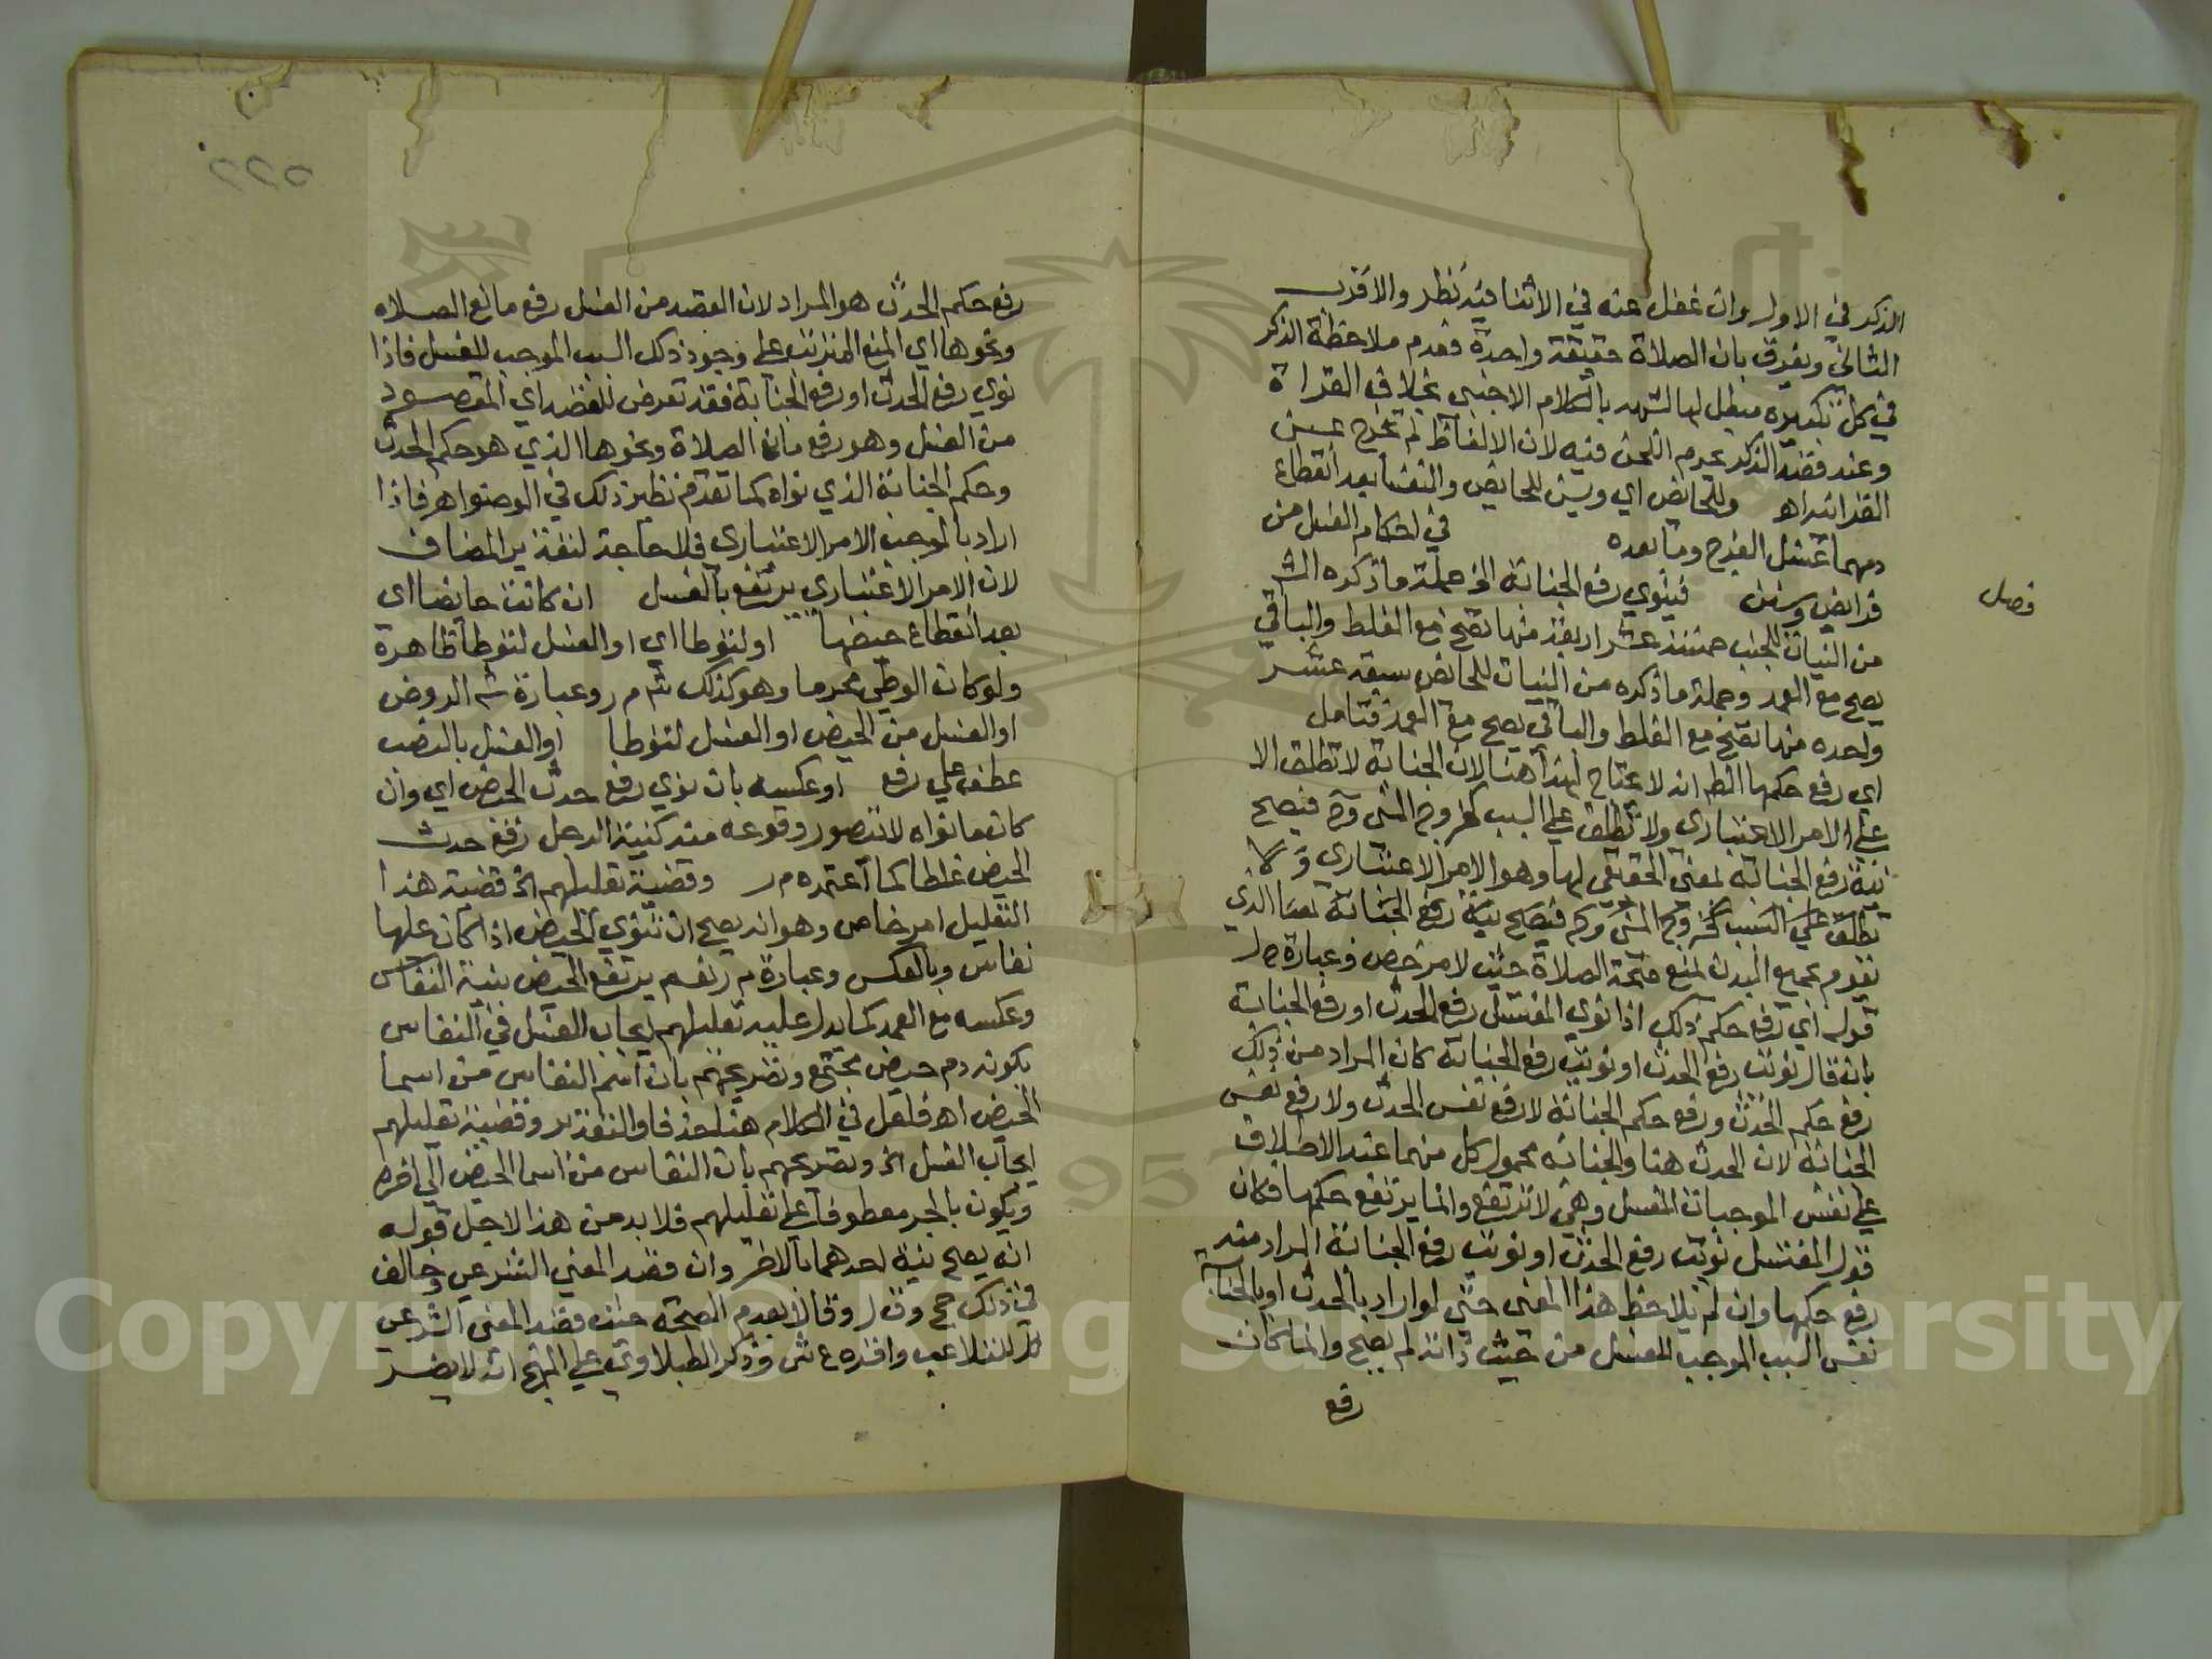 الذكر في الاول وان غفل عنه في الاثنا فيه نظر والاقرب
الثاني ويفرق بان الصلاة حقيقة واحدة فعدم ملاحظة الذكر
في كل تكبيرة مبطل لها لشبهه بالكلام الاجنبي بخلاف القراة
وعند قصد الذكر يحرم اللحن فيه لان الالفاظ لم تخرج عن
القرانيه اهـ وللحائض اي ويسن للحايض والنفسا بعد انقطاع
دمهما غسل الفرج وما بعده في احكام الغسل من
فصل
فرايض وسنن فينوي رفع الجنابة الخ جملة ما ذكره الش
من النيات للجنب خمسة عشر اربعة منها تصح مع الغلط والباقي
يصح مع العمد وجملة ما ذكره من النيات للحائض سبعة عشر
واحدة منها تصح مع الغلط والباقي يصح مع العمد فتامل
اي رفع حكمها الظ انه لا يحتاج لهذا هنا لان الجنابة لا تطلق الا
على الامر الاعتباري ولا تطلق على السبب كخروج المني وح فيصح
نية رفع الجنابة لمعنى الحقيقي لها وهو الامر الاعتباري ولا
تطلق على السبب كخروج المني وح فيصح نية رفع الجنابة بمعنا الذي
يقوم بجميع البدن يمنع صحة الصلاة حيث لا مرخص وعبارة ص ل
قوله اي رفع حكم ذلك اذا نوى المغتسل رفع الحدث او رفع الجنابة
بان قال نويت رفع الحدث او نويت رفع الجنابة كان المراد من ذلك
رفع حكم الحدث ورفع حكم الجنابة لا رفع نفس الحدث ولا رفع نفس
الجنابة لان الحدث هنا والجنابة محمول كل منهما عند الاطلاق
على نفس الموجبات للغسل وهي لا ترتفع وانما يرتفع حكمها فكان
قول المغتسل نويت رفع الحدث او نويت رفع الجنابة المراد منه
رفع حكمها وان لم يلاحظ هذا المعنى حتى لو اراد بالحدث او بالجنابة
نفس السبب الموجب للغسل من حيث ذاته لم يصح وانما كان
رفع
٢٢٥
رفع حكم الحدث هو المراد لان القصد من الغسل رفع مانع الصلاه
ونحوها اي المنع المترتب على وجود ذلك السبب الموجب للغسل فاذا
نوى رفع الحدث او رفع الجنابة فقد تعرض للقصد اي المقصود
من الغسل وهو رفع مانع الصلاة ونحوها الذي هو حكم الحدث
وحكم الجنابة الذي نواه كما تقدم نظير ذلك في الوضوء اهـ فاذا
اراد بالموجب الامر الاعتباري فلا حاجة لتقدير المضاف
لان الامر الاعتباري يرتفع بالغسل ان كانت حايضا اي
بعد انقطاع حيضها او لتوطا اي او الغسل لتوطا ظاهره
ولو كان الوطي محرما وهو كذلك ش م ر وعبارة ش الروض
او الغسل من الحيض او الغسل لتوطا او الغسل بالنصب
عطف على رفع او عكسه بان نوى رفع حدث الحيض اي وان
كان ما نواه لا يتصور وقوعه منه كنية الرجل رفع حدث
الحيض غلطا كما اعتمده م ر وقضية تعليلهم الخ قضية هذا
التعليل امر خاص وهو انه يصح ان تنوي الحيض اذا كان عليها
نفاس وبالعكس وعبارة م ر نعم يرتفع الحيض بنية النفاس
وعكسه مع العمد كما يدل عليه تعليلهم ايجاب الغسل في النفاس
بكونه دم حيض مجتمع وتصريحهم بان اسم النفاس من اسما
الحيض اهـ فلعل في الكلام هنا حذفا والتقدير وقضية تعليلهم
ايجاب الغسل الخ وتصريحهم بان النفاس من اسما الحيض الى اخره
ويكون بالجر معطوفا على تعليلهم فلا بد من هذا لاجل قوله
انه يصح بنية احدهما بالاخر وان قصد المعنى الشرعي وخالف
في ذلك حج و ق ل وقالا بعدم الصحة حيث قصد المعنى الشرعي
للتلاعب واقره ع ش وذكر الطبلاوي على المنهج انه لا يضر
Copyright © King Saud University